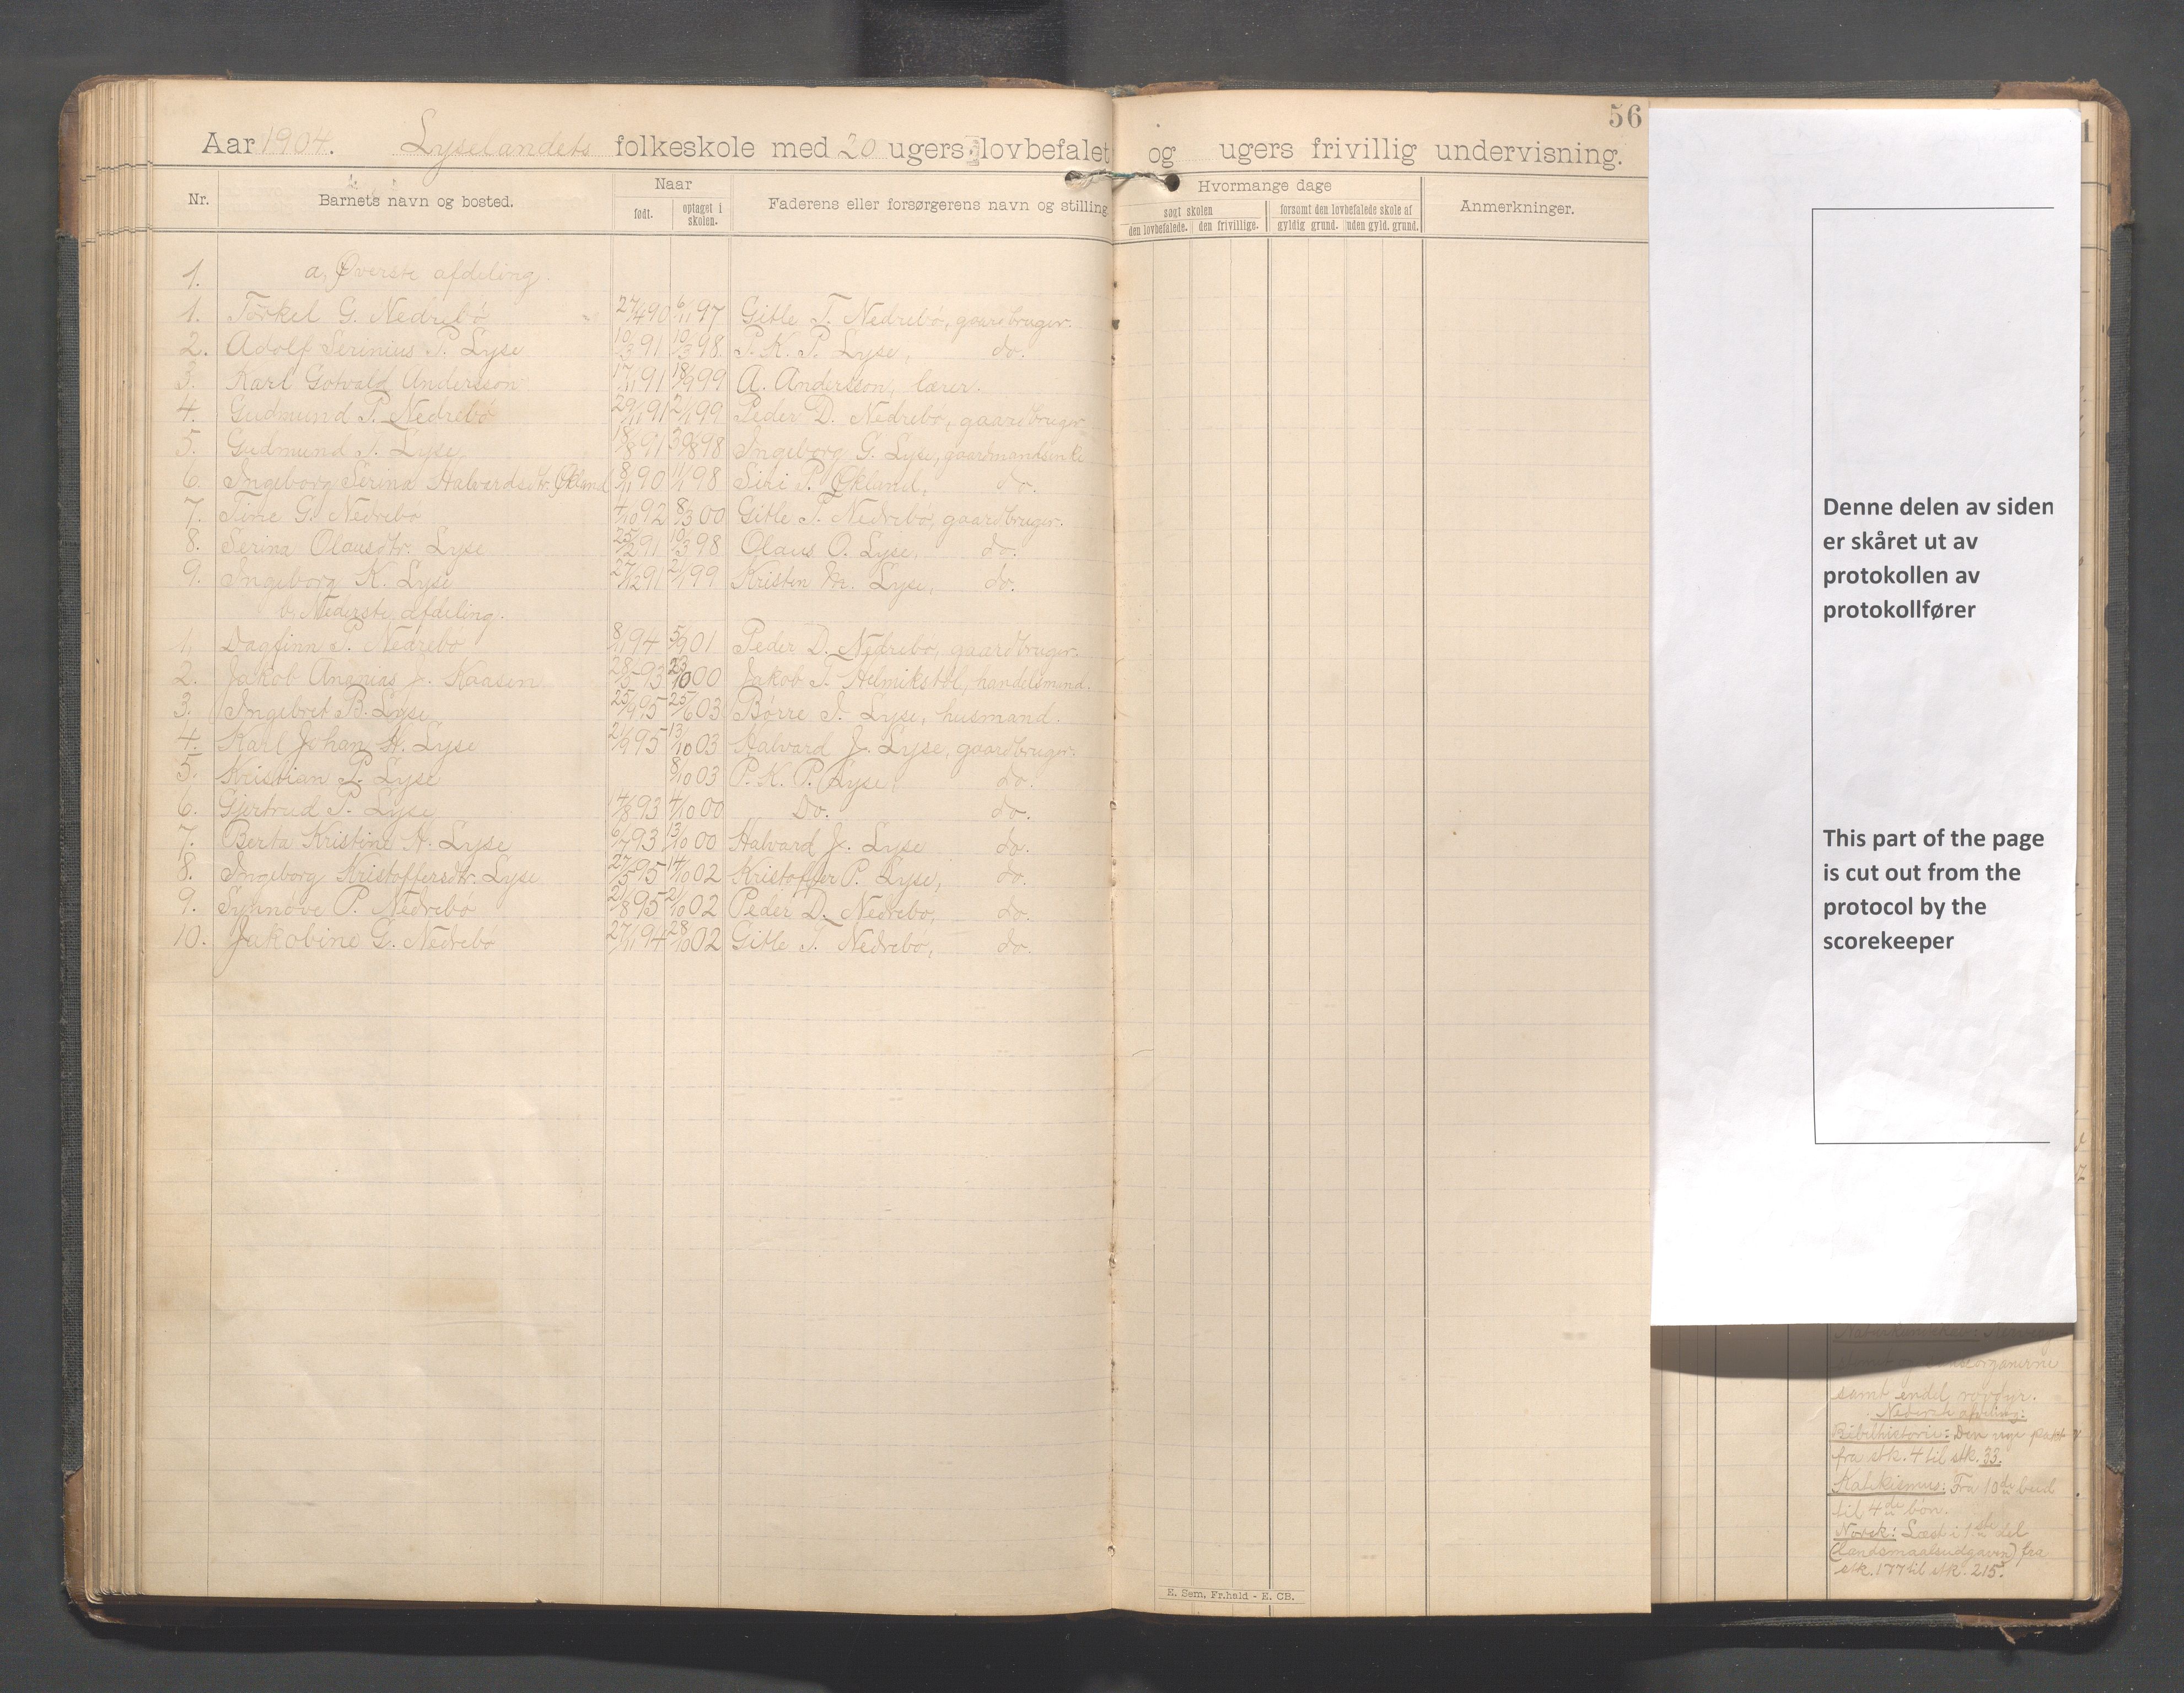 56
Aar 1904. Lyselandets folkeskole med 20 ugers lovbefalet og ugers frivillig undervisning.
Nr. Barnets navn og bosted. Naar født. optaget i skolen. Faderens eller forsørgerens navn og stilling Hvormange dage søgt skolen den lovbefalede. den frivillige. forsømt den lovbefalede skole af gyldig grund. uden gyld. grund. Anmerkninger.
1. a, Øverste afdeling.
1. Torkel G. Nedrebö 27/4 90 6/11 97 Gitle T. Nedrebö, gaardbruger.
2. Adolf Serinius P. Lyse 10/3 91 10/3 98. P. K. P. Lyse, do.
3. Karl Gotvald Andersson 17/11 91 18/9 99 A. Andersson, lærer.
4. Gudmund P. Nedrebö 29/11 91 2/1 99 Peder D. Nedrebö, gaardbruger
5. Gudmund T. Lyse, 91 98 Ingeborg G. Lyse, gaardmandsenke
6. Ingeborg Serina Halvardsdtr. Økland 8/11 90 11/1 98 Siri P. Økland, do.
7. Tine G. Nedrebö 4/10 92 8/3 00 Gitle T. Nedrebö, gaardbruger.
8. Serina Olausdtr. Lyse 25/2 91 10/3 98 Olaus O. Lyse, do.
9. Ingeborg K. Lyse 27/12 91 2/1 99 Kristen Lyse, do.
b, Nederste afdeling.
1. Dagfinn P. Nedrebö 8/1 94 5/9 01 Peder D. Nedrebö, gaardbruger.
2. Jakob Ananias J. Kaasen 28/5 93 23/10 00 Jakob T. Helmikstøl, handelsmand.
3. Ingebret B. Lyse 25/9 95 25/6 03 Börre I. Lyse, husmand.
4. Karl Johan H. Lyse 2/9 95 13/10 03 Halvard J. Lyse, gaardbruger.
5. Kristian P. Lyse 8/10 03 P. K. P. Lyse, do.
6. Gjertrud P. Lyse 14/8 93 4/10 00 Do. do.
7. Berta Kristine H. Lyse 6/7 93 13/10 00 Halvard J. Lyse do.
8. Ingeborg Kristoffersdtr. Lyse 27/5 95 14/10 02 Kristoffer P. Lyse, do.
9. Synnöve P. Nedrebö 2/8 95 2/10 02 Peder D. Nedrebö, do.
10. Jakobine G. Nedrebö 27/11 94 28/10 02 Gitle T. Nedrebö, do.
E. Sem, Fr.hald - E. CB.
Denne delen av siden
er skåret ut av
protokollen av
protokollfører
This part of the page
is cut out from the
protocol by the
scorekeeper
samt endel rovdyr.
Nederste afdeling:
Bibelhistorie: Den nye pakt
fra stk. 4 til stk. 33.
Katekismus: Fra 10de bud
til 4de bön.
Norsk: Læst i 1ste del
(landsmaalsudgaven) fra
stk. 177 til stk. 215.